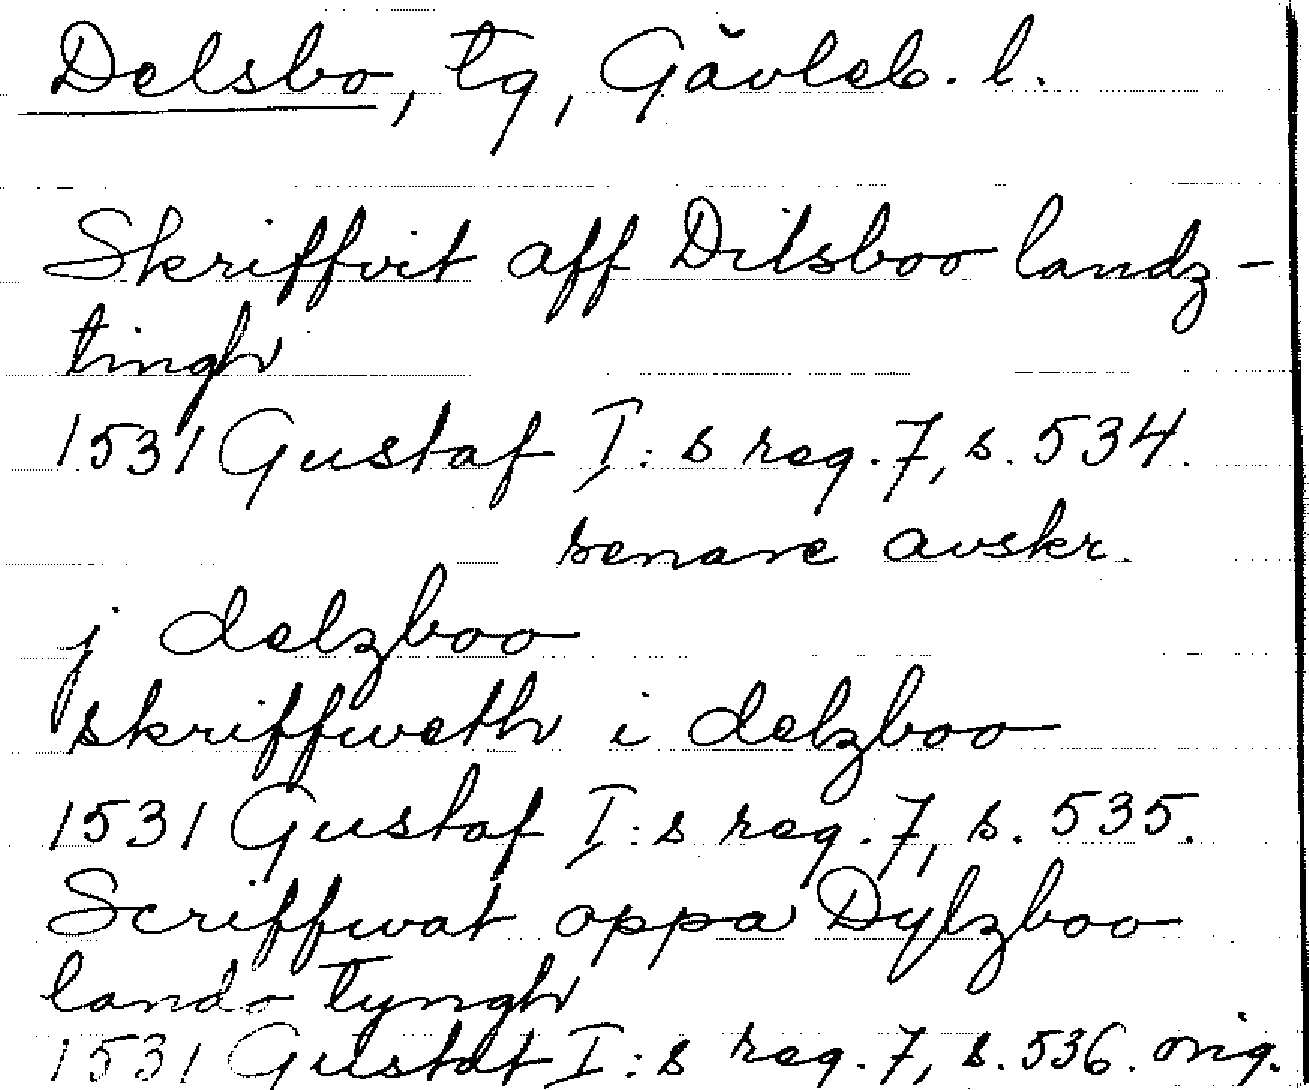 Delsbo, tg, Gävleb. l.
Skriffvit aff Dilsboo landz-
tingh
1531 Gustaf I:s reg. 7, s. 534.
senare avskr.
j delzboo
skriffweth i delzboo
1531 Gustaf I:s reg. 7, s. 535.
Scriffwat oppa Dylzboo
lands tyngh
1531 Gustaf I:s reg. 7, s. 536. orig.